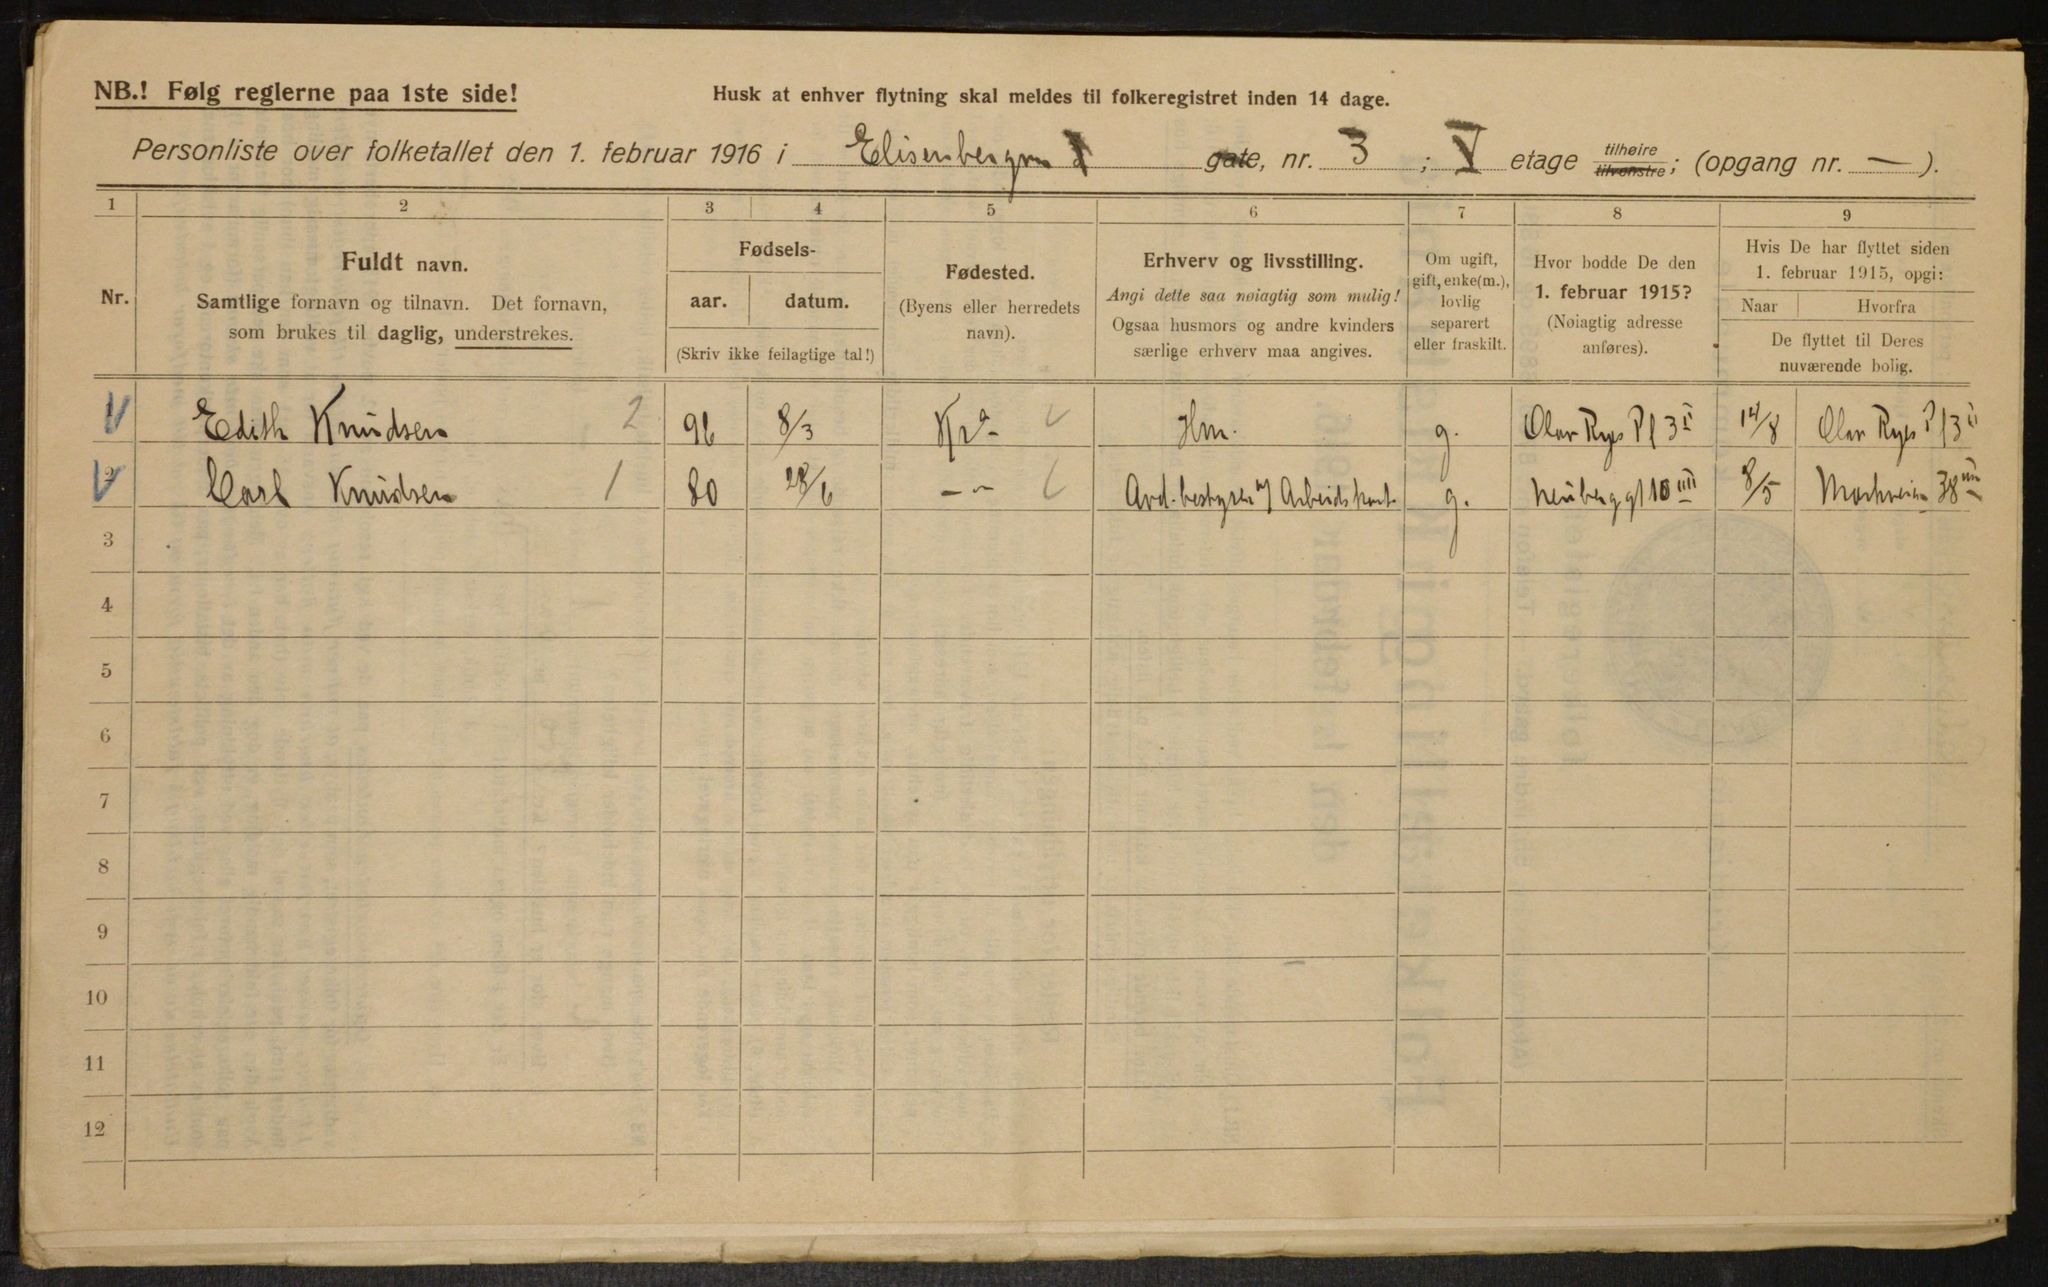 NB.! Følg reglerne paa 1ste side!
Husk at enhver flytning skal meldes til folkeregistret inden 14 dage.
Personliste over folketallet den 1. februar 1916 i Elisenbergvn gate, nr. 3 ; V etage tilhøire tilvenstre; (opgang nr. — ).
1 2 3 4 5 6 7 8 9
Nr.
Fuldt navn.
Samtlige fornavn og tilnavn. Det fornavn,
som brukes til daglig, understrekes.
Fødsels-
aar. datum.
(Skriv ikke feilagtige tal!)
Fødested.
(Byens eller herredets
navn).
Erhverv og livsstilling.
Angi dette saa nøiagtig som mulig!
Ogsaa husmors og andre kvinders
særlige erhverv maa angives.
Om ugift,
gift, enke(m.),
lovlig
separert
eller fraskilt.
Hvor bodde De den
1. februar 1915?
(Nøiagtig adresse
anføres).
Hvis De har flyttet siden
1. februar 1915, opgi:
Naar Hvorfra
De flyttet til Deres
nuværende bolig.
1 Edith Knudsen 2 96 8/3 Kra Hm. g. Olav Ryes Pl 3 II 14/8 Olav Ryes Pl 3 II
2 Carl Knudsen 1 80 28/6 — Avd.bestyrer v/ Arbeidskont. g. Neuberggt 10 IIII 8/5 Markveien 38 IIII
3
4
5
6
7
8
9
10
11
12